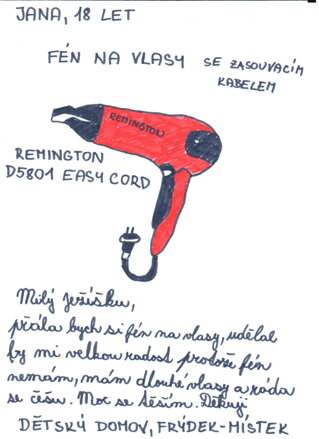 JANA, 18 LET
FÉN NA VLASY SE ZASOUVACÍM
KABELEM
REMINGTON
REMINGTON
D5801 EASY CORD
Milý Ježíšku,
přála bych si fén na vlasy, udělal
by mi velkou radost protože fén
nemám, mám dlouhé vlasy a ráda
se češu. Moc se těším. Děkuji,
DĚTSKÝ DOMOV, FRÝDEK-MÍSTEK